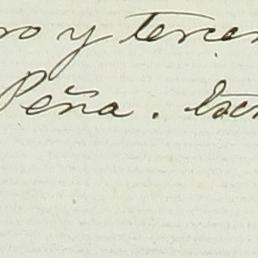 ro y tercer
Peña. Esc